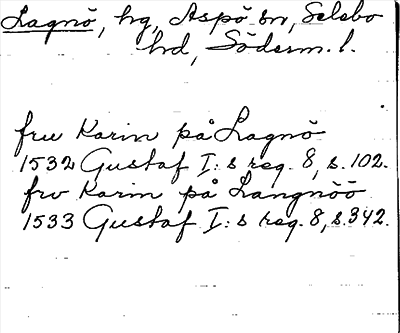 Lagnö, hg, Aspö sn, Selebo
hd, Söderm. l.
fru Karin på Lagnö
1532 Gustaf I:s reg. 8, s. 102.
frv Karin på Langnöö
1533 Gustaf I:s reg. 8, s. 342.